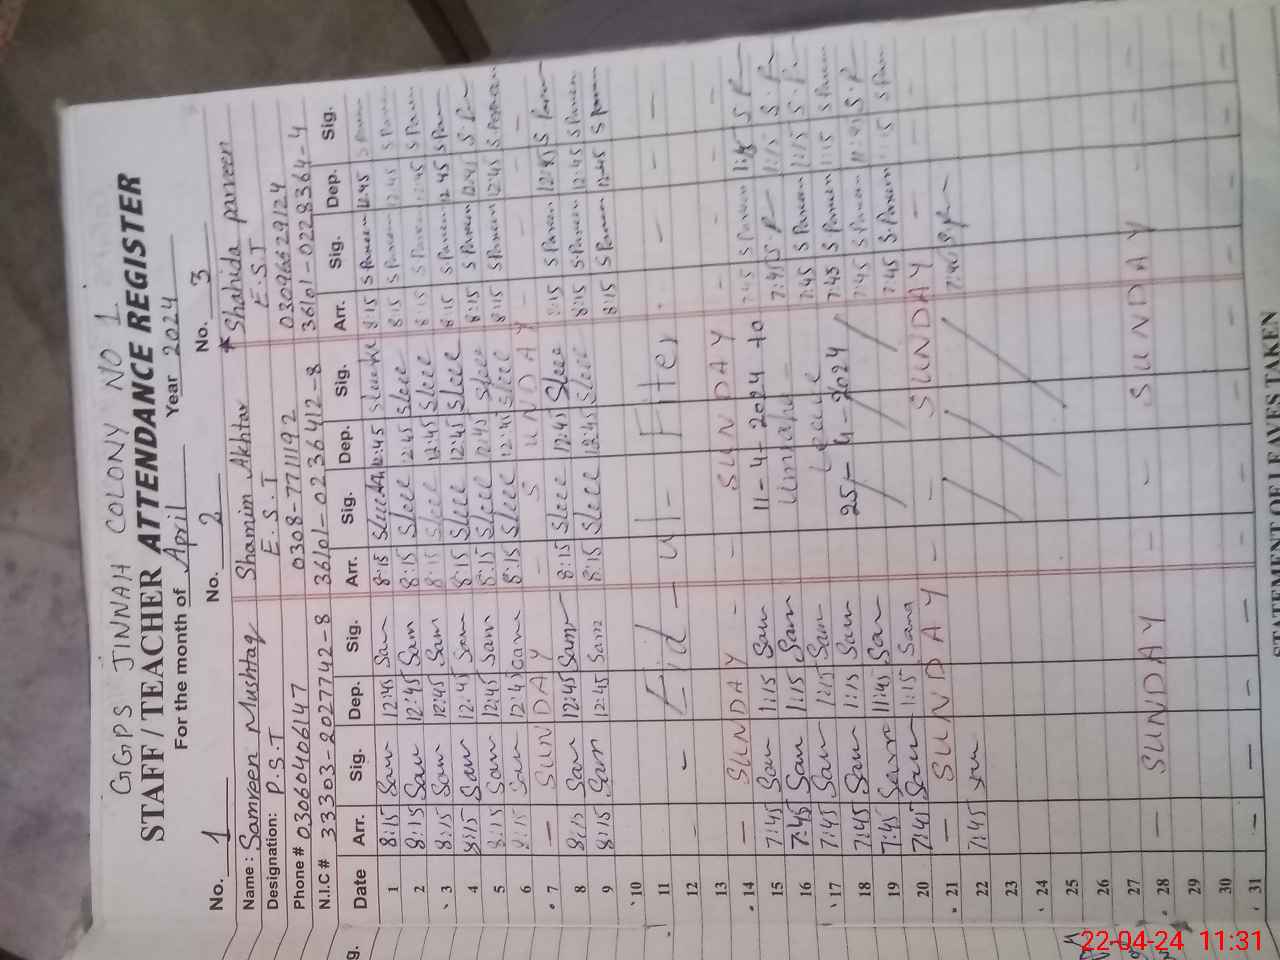 GGPS JINNAH COLONY NO 1
STAFF / TEACHER ATTENDANCE REGISTER
For the month of April Year 2024
No. 1 No. 2 No. 3
Name: Samreen Mushtaq Shamim Akhtar * Shahida parveen
Designation: P.S.T E.S.T E.S.T
Phone # 03060406147 0308-7711192 03096629124
N.I.C # 33303-2027742-8 36101-0236412-8 36101-0228364-4
Date Arr. Sig. Dep. Sig. Arr. Sig. Dep. Sig. Arr. Sig. Dep. Sig.
1 8:15 Sam 12:45 Sam 8:15 12:45 8:15 S Parveen 12:45 S Parv
2 8:15 Sam 12:45 Sam 8:15 12:45 8:15 S Parveen 12:45 S Parv
3 8:15 Sam 12:45 Sam 8:15 12:45 8:15 S Parveen 12:45 S Parv
4 8:15 Sam 12:45 Sam 8:15 12:45 8:15 S Parveen 12:45 S Parv
5 8:15 Sam 12:45 Sam 8:15 12:45 8:15 S Parveen 12:45 S P
6 8:15 Sam 12:45 8:15 12:45 8:15 S Parveen 12:45 S. Parveen
7 — SUNDAY — SUNDAY — — —
8 8:15 Sam 12:45 Sam 8:15 12:45 8:15 S Parveen 12:45 S Parveen
9 8:15 Sam 12:45 Sam 8:15 12:45 8:15 S Parveen 12:45 S Parveen
10 8:15 S Parveen 12:45 S Parveen
11 — Eid - ul - Fiter — — —
12
13
14 — SUNDAY — — SUNDAY — — —
15 7:45 Sam 1:15 Sam 11-4-2024 to 7:45 S Parveen 1:15 S P
16 7:45 Sam 1:15 Sam Umrah 7:45 S P 1:15 S. P
17 7:45 Sam 1:15 Sam Leave 7:45 S Parveen 1:15 S. P
18 7:45 Sam 1:15 Sam 25-4-2024 7:45 S Parveen 1:15 S Parveen
19 7:45 Sam 11:45 Sam 7:45 S Parveen S. P
20 7:45 Sam 1:15 Sam 7:45 S. Parveen 1:15 S Parv
21 — SUNDAY — — SUNDAY — — —
22 7:45 7:45 S. P
23
24
25
26
27
28 — SUNDAY — — SUNDAY — — —
29
30
31 — — — — — — — — — — —
STATEMENT OF LEAVES TAKEN
22-04-24 11:31